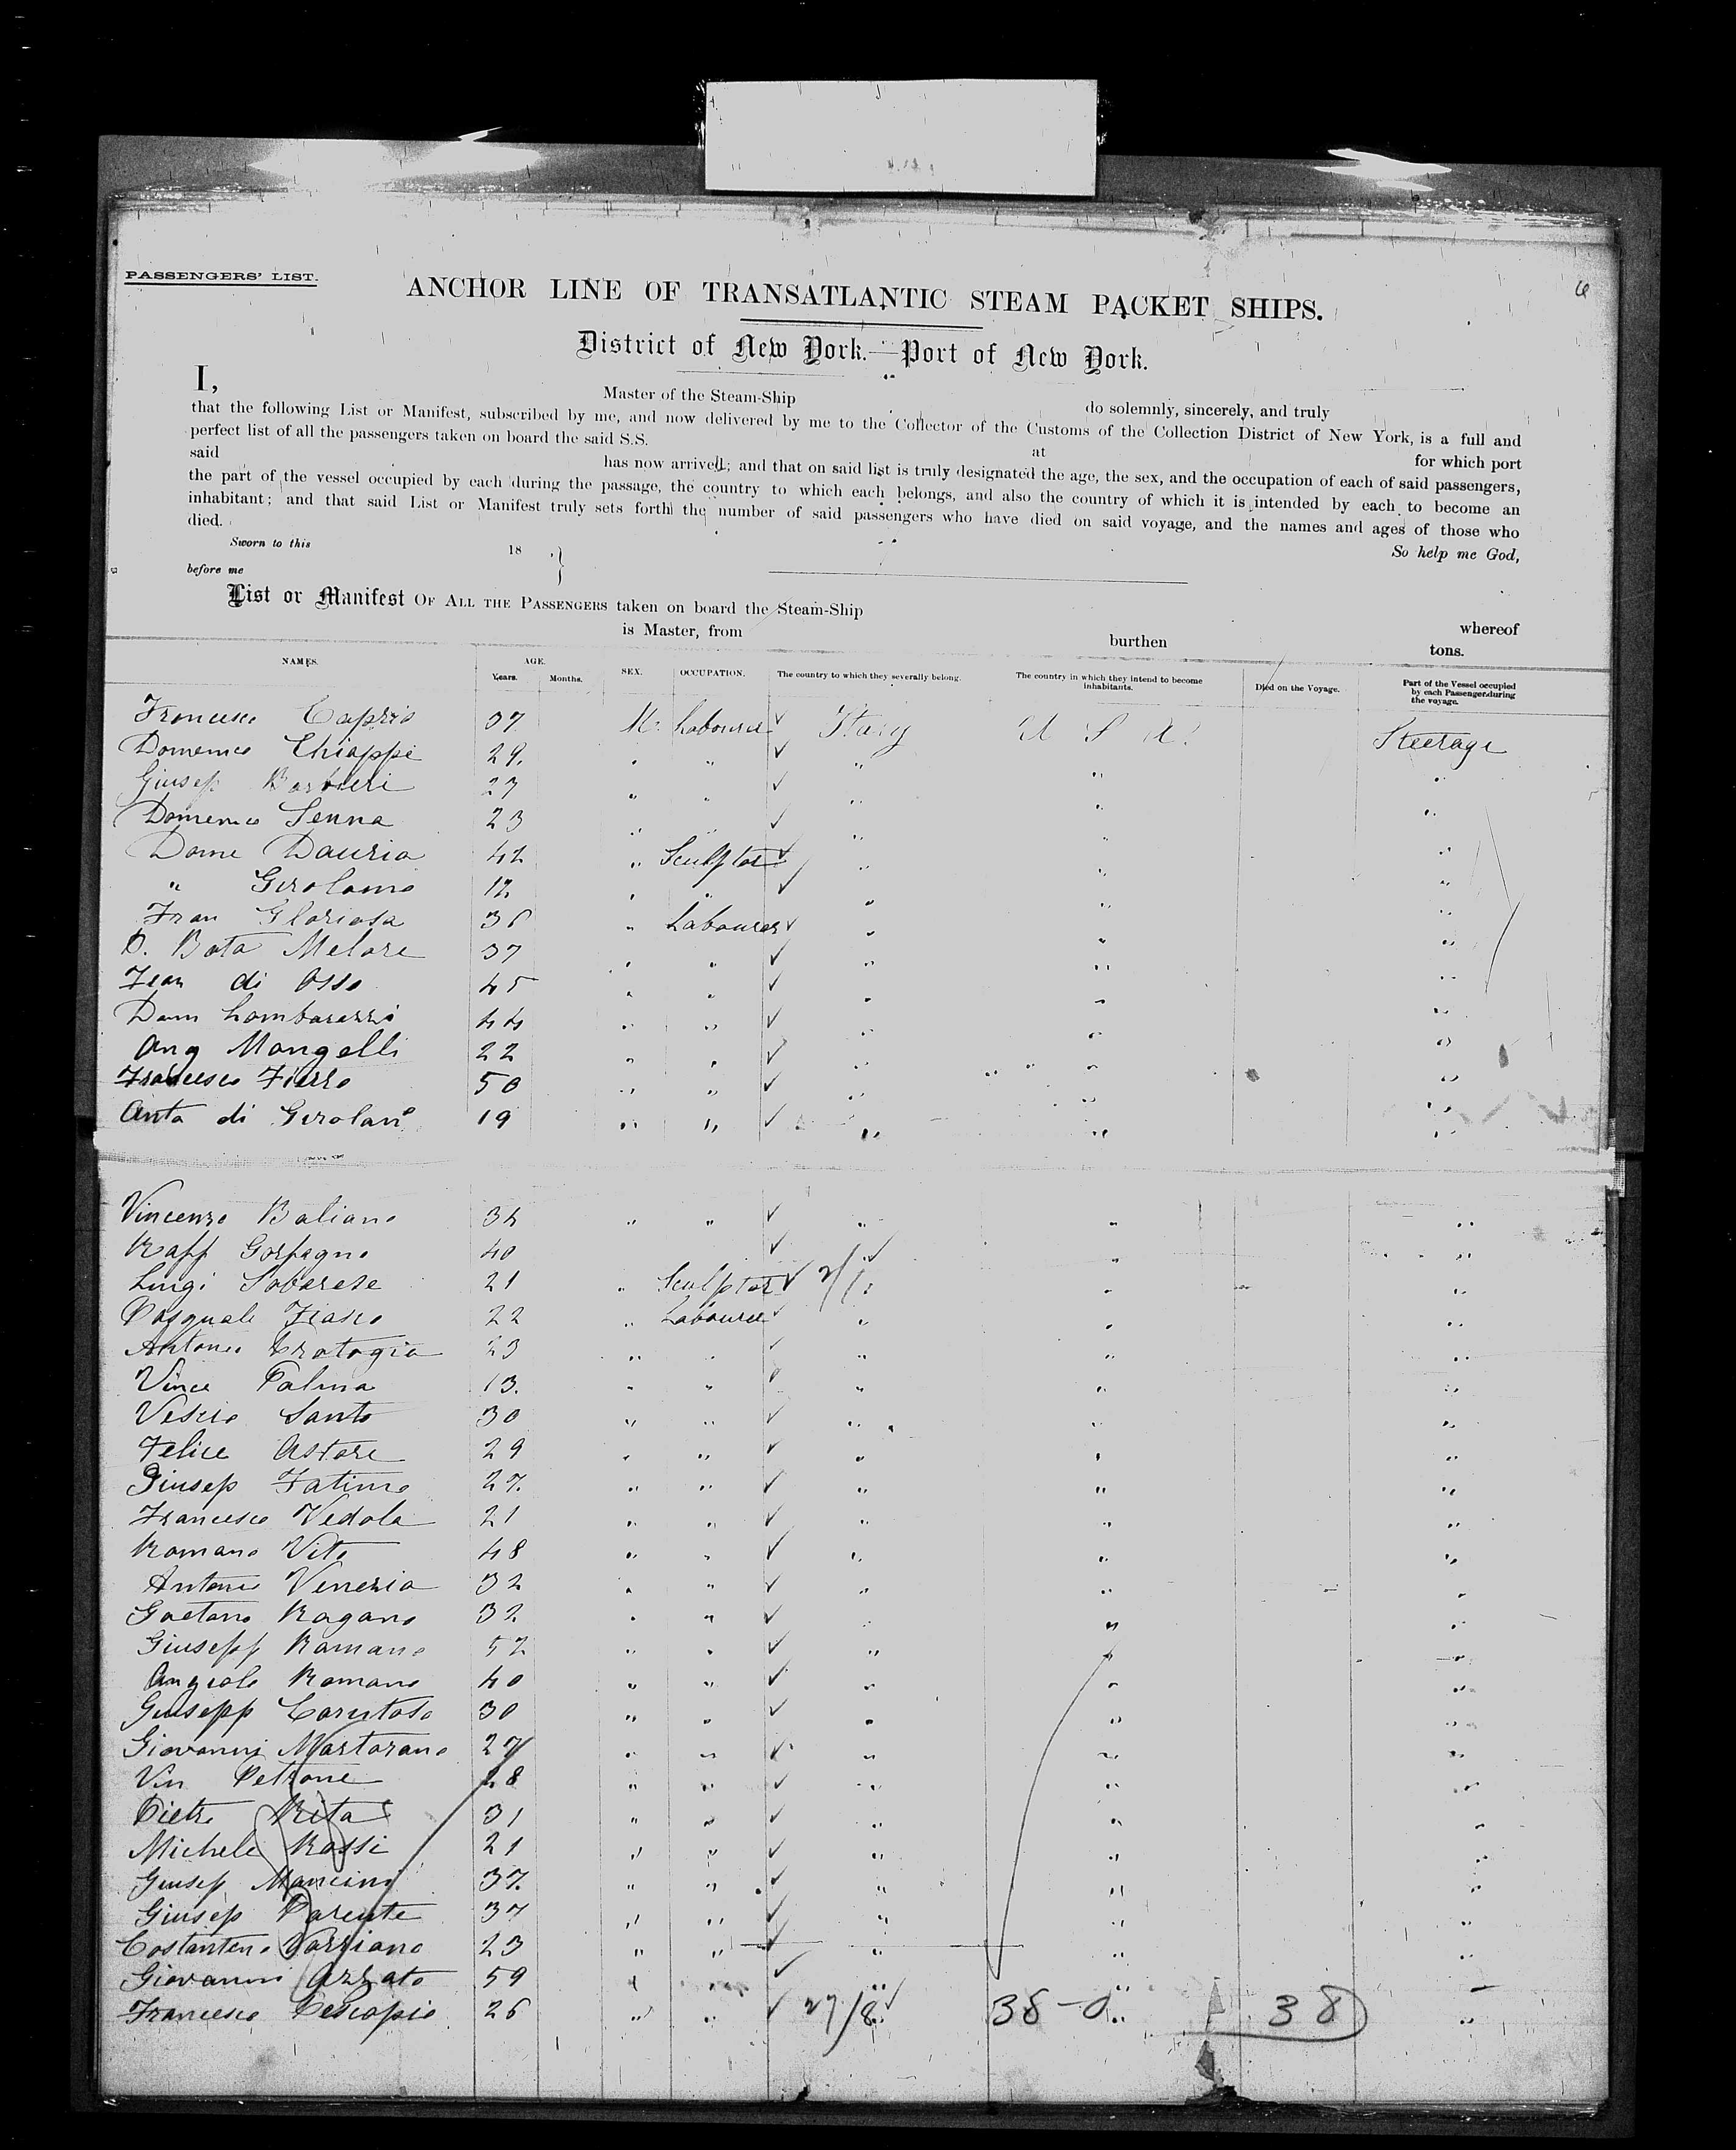 6
PASSENGERS' LIST.
ANCHOR LINE OF TRANSATLANTIC STEAM PACKET SHIPS.
District of New York.—Port of New York.
I, Master of the Steam-Ship do solemnly, sincerely, and truly
that the following List or Manifest, subscribed by me, and now delivered by me to the Collector of the Customs of the Collection District of New York, is a full and
perfect list of all the passengers taken on board the said S.S. at for which port
said has now arrived; and that on said list is truly designated the age, the sex, and the occupation of each of said passengers,
the part of the vessel occupied by each during the passage, the country to which each belongs, and also the country of which it is intended by each to become an
inhabitant; and that said List or Manifest truly sets forth the number of said passengers who have died on said voyage, and the names and ages of those who
died.
Sworn to this 18 So help me God,
before me
List or Manifest OF ALL THE PASSENGERS taken on board the Steam-Ship whereof
is Master, from burthen tons.
NAMES. AGE. Years. Months. SEX. OCCUPATION. The country to which they severally belong. The country in which they intend to become inhabitants. Died on the Voyage. Part of the Vessel occupied by each Passenger during the voyage.
Francesco Caprio 37 M. Labourer Italy U S A. Steerage
Domenico Chiappe 29. " " " "
Giusep Barbieri 27 " " " " "
Domenico Senna 23 " " " " "
Dome Dauria 42 " Sculptor " " "
" Girolamo 12 " " " " "
Fran Gloriosa 36 " Labourer " " "
D. Bata Melore 37 " " " " "
Fran di Osso 45 " " " " "
Dom Lombarezzi 44 " " " " "
Ang Mongelli 22 " " " " "
Francesco Fierro 50 " " " " "
Anto di Girolamo 19 " " " " "
Vincenzo Baliano 34 " " " " "
Raff 40 " "
Luigi Saverese 21 " Sculptor " "
Pasquale Fiasco 22 " Labourer " " "
Antonio 23 " " " " "
Vince Palma 13. " " " " "
Vescio Santo 30 " " " " "
Felice Astore 29 " " " " "
Giusep Fatimo 27. " " " " "
Francesco Vedola 21 " " " " "
Romano Vito 48 " " " " "
Antonio Venezia 32 " " " " "
Gaetano Ragano 32 " " " " "
Giusepp Romano 52 " " " " "
Angiolo Romano 40 " " " " "
Giusepp Carutoso 30 " " " " "
Giovanni Martorano 27 " " " " "
Vin Petrone 28 " " " " "
Pietro Rita 31 " " " " "
Michele Rossi 21 " " " " "
Giusep Mancini 37. " " " " "
Giusep Parente 37 " " " " "
Costanteno Varriano 23 " " " " "
Giovanni Azzato 59 " " " " "
Francesco 26 " " 27/8 38-0 38 "